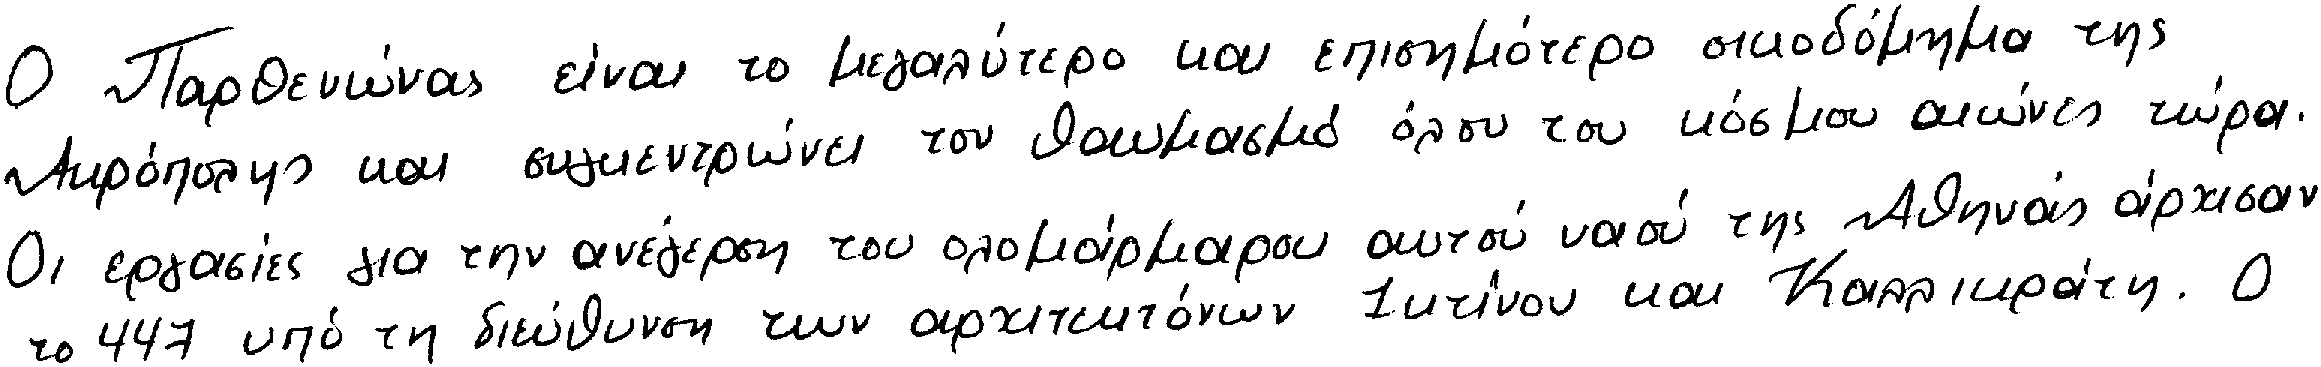 Ο Παρθενώνας είναι το μεγαλύτερο και επισημότερο οικοδόμημα της
Ακρόπολης και συγκεντρώνει τον θαυμασμό όλου του κόσμου αιώνες τώρα.
Οι εργασίες για την ανέγερση του ολομάρμαρου αυτού ναού της Αθηνάς άρχισαν
το 447 υπό τη διεύθυνση των αρχιτεκτόνων Ικτίνου και Καλλικράτη. Ο